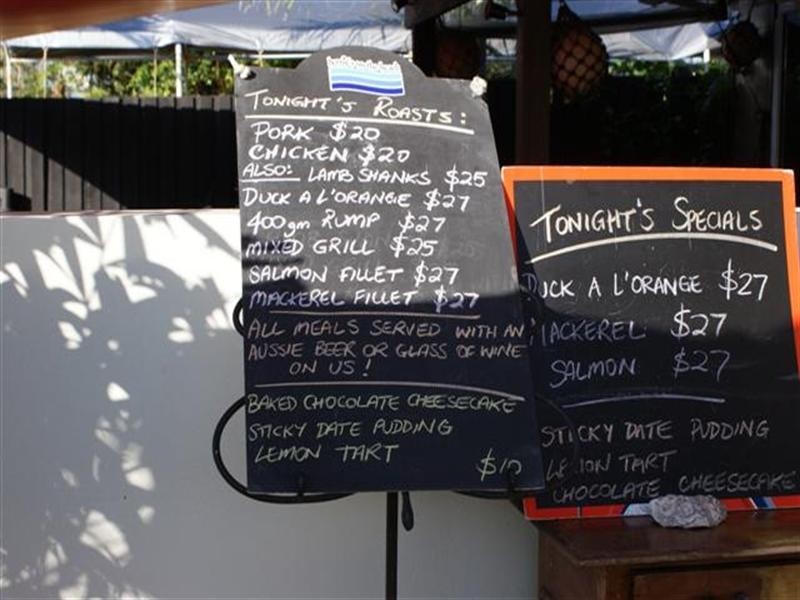 TONIGHT'S ROASTS:
PORK $20
CHICKEN $20
ALSO: LAMB SHANKS $25
DUCK A L'ORANGE $27
400gm RUMP $27
MIXED GRILL $25
SALMON FILLET $27
MACKEREL FILLET $27
ALL MEALS SERVED WITH AN
AUSSIE BEER OR GLASS OF WINE
ON US!
BAKED CHOCOLATE CHEESECAKE
STICKY DATE PUDDING
LEMON TART
$10
TONIGHT'S SPECIALS
DUCK A L'ORANGE $27
MACKEREL $27
SALMON $27
STICKY DATE PUDDING
LEMON TART
CHOCOLATE CHEESECAKE